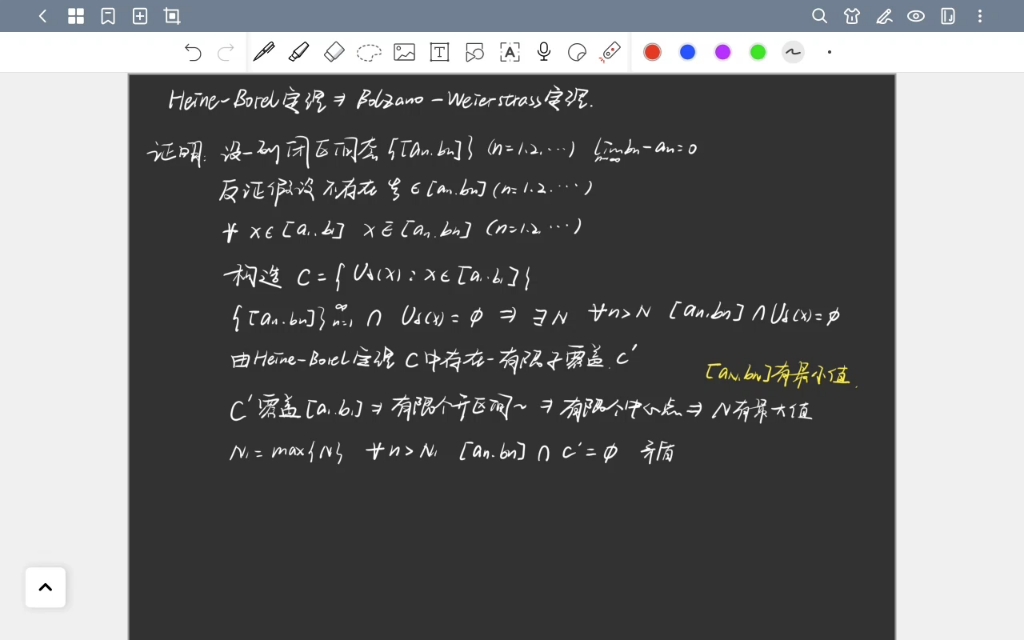 Heine-Borel定理⇒Bolzano-Weierstrass定理.
证明: 设一列闭区间套{[an.bn]} (n=1.2.…) lim n→∞ bn-an=0
反证假设不存在ξ∈[an.bn](n=1.2.…)
∀ x∈[a1.b1] x∈[an.bn] (n=1.2…)
构造 C={Uδ(x):x∈[a1.b1]}
{[an.bn]}∞n=1 ∩ Uδ(x)=φ ⇒ ∃N ∀n>N [an.bn]∩Uδ(x)=φ
由Heine-Borel定理 C中存在一有限子覆盖.C'
[aN.bN]有最小值.
C'覆盖[a1.b1]⇒有限个开区间~⇒有限个中心点⇒N有最大值
N1=max{N} ∀n>N1 [an.bn]∩C'=φ 矛盾